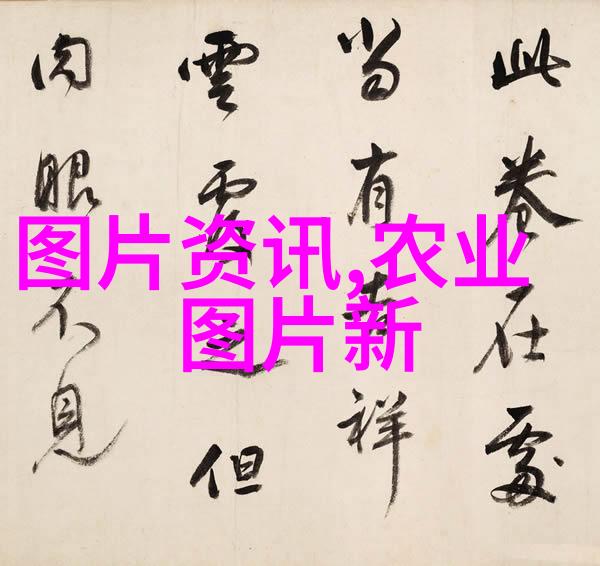 此卷在處
當有吉祥
雲覆之但
肉眼不見
图片资讯,农业
图片新